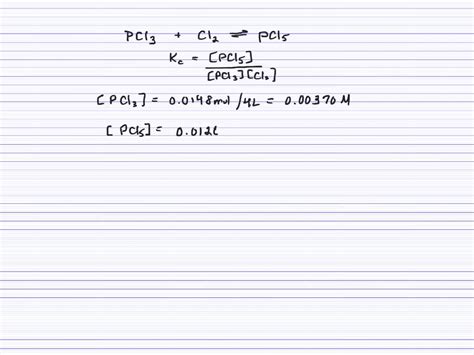 PCl3 + Cl2 ⇌ PCl5
Kc = [PCl5]
[PCl3][Cl2]
[PCl3] = 0.0148mol/4L = 0.00370 M
[PCl5] = 0.012l